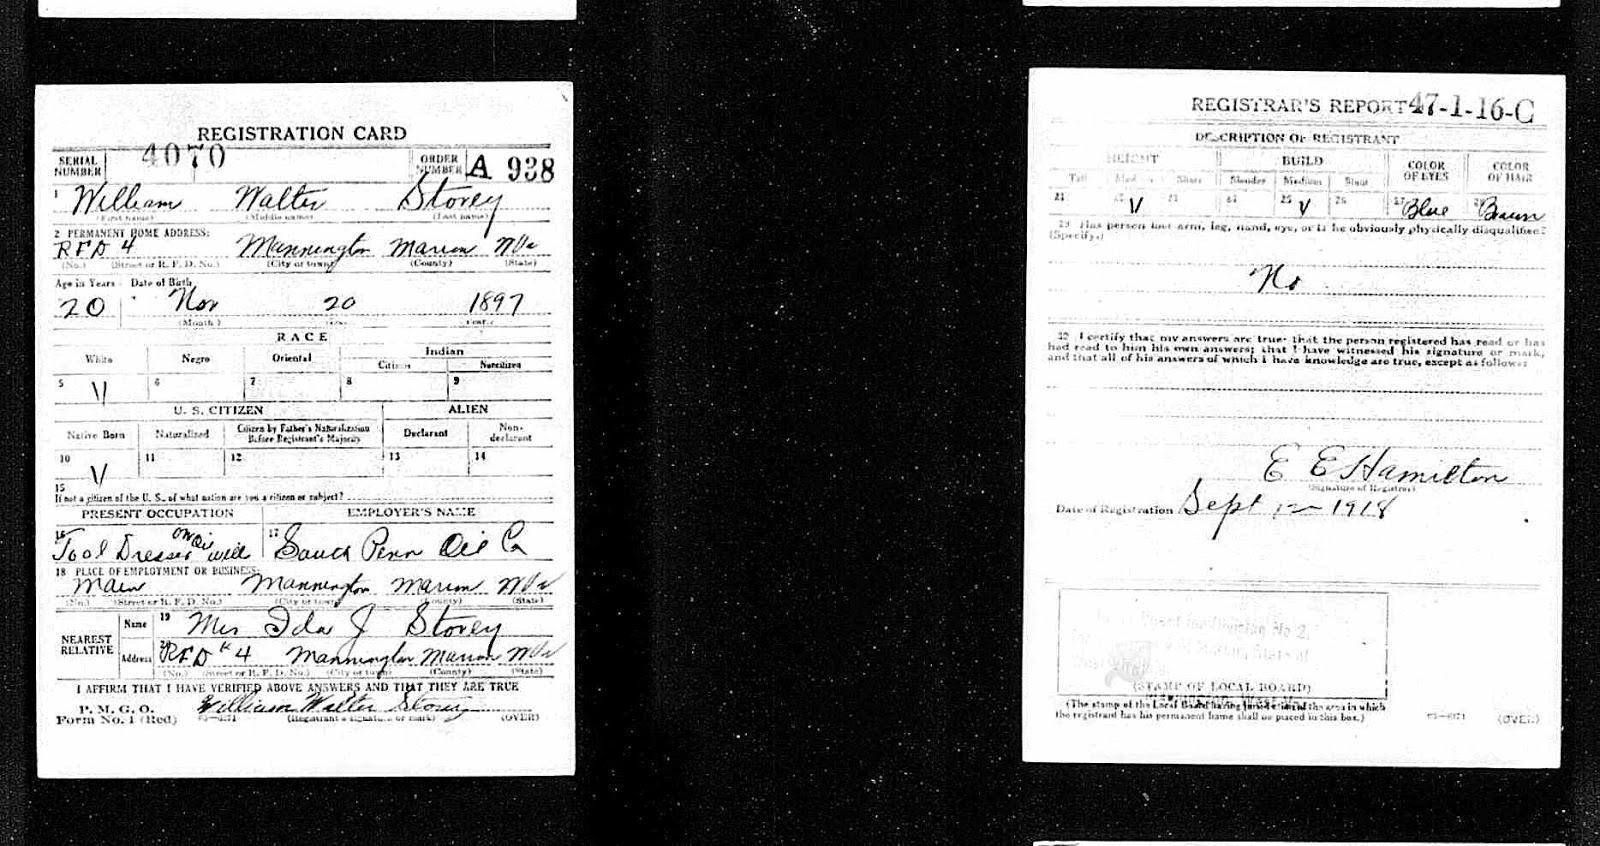 REGISTRATION CARD
SERIAL NUMBER 4070 ORDER NUMBER A 938
1 William Walter Storey
(First name) (Middle name) (Last name)
2 PERMANENT HOME ADDRESS:
RFD 4 Mannington Marion WVa
(No.) (Street or R. F. D. No.) (City or town) (County) (State)
Age in Years Date of Birth
20 Nov 20 1897
(Month) (Day) (Year)
RACE
White Negro Oriental Indian
Citizen Noncitizen
5 V 6 7 8 9
U. S. CITIZEN ALIEN
Native Born Naturalized Citizen by Father's Naturalization Before Registrant's Majority Declarant Non-declarant
10 V 11 12 13 14
15
If not a citizen of the U. S., of what nation are you a citizen or subject?
PRESENT OCCUPATION EMPLOYER'S NAME
16 Tool Dresser on Oil well 17 South Penn Oil Co
18 PLACE OF EMPLOYMENT OR BUSINESS:
Main Mannington Marion WVa
(No.) (Street or R. F. D. No.) (City or town) (County) (State)
NEAREST RELATIVE Name 19 Mrs Ida J Storey
Address 20 RFD #4 Mannington Marion WVa
(No.) (Street or R. F. D. No.) (City or town) (County) (State)
I AFFIRM THAT I HAVE VERIFIED ABOVE ANSWERS AND THAT THEY ARE TRUE
P. M. G. O.
Form No. 1 (Red) 03-6171 William Walter Storey
(Registrant's signature or mark) (OVER)
REGISTRAR'S REPORT 47-1-16-C
DESCRIPTION OF REGISTRANT
HEIGHT BUILD COLOR OF EYES COLOR OF HAIR
Tall Medium Short Slender Medium Stout
21 22 V 23 24 25 V 26 27 Blue 28 Brown
29 Has person lost arm, leg, hand, eye, or is he obviously physically disqualified?
(Specify.)
No
I certify that my answers are true; that the person registered has read or has
had read to him his own answers; that I have witnessed his signature or mark,
and that all of his answers of which I have knowledge are true, except as follows:
E E Hamilton
(Signature of Registrar)
Date of Registration Sept 12 1918
Board for Division No 2,
State of
(STAMP OF LOCAL BOARD)
(The stamp of the Local Board having jurisdiction of the area in which
the registrant has his permanent home shall be placed in this box.) 03-6171 (OVER)